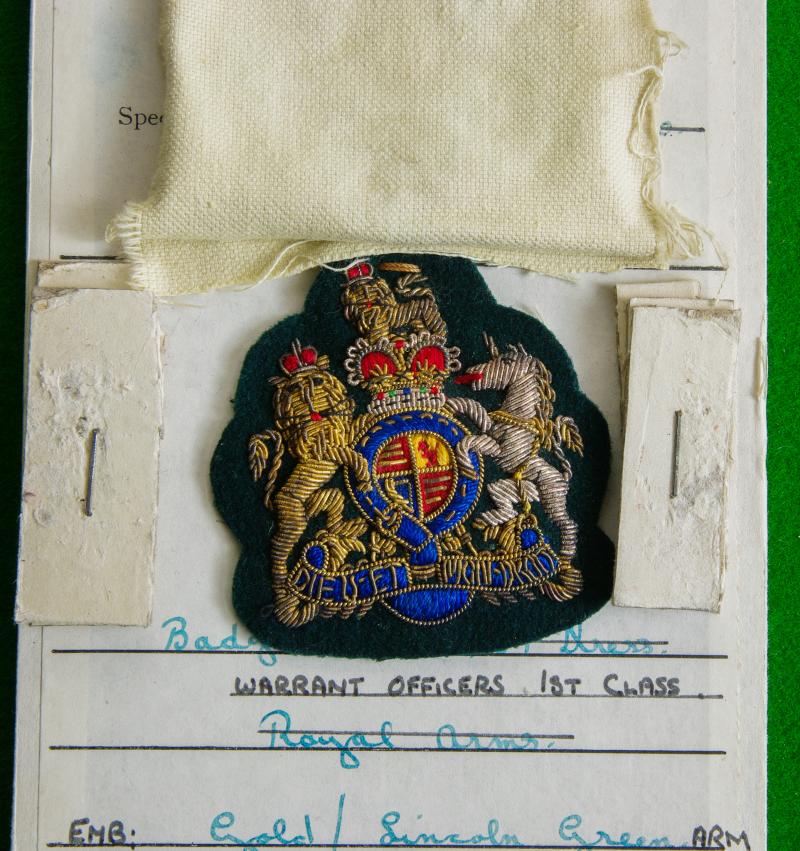 Dress.
WARRANT OFFICERS 1ST CLASS.
Royal Arms.
EMB: Gold / Lincoln Green ARM